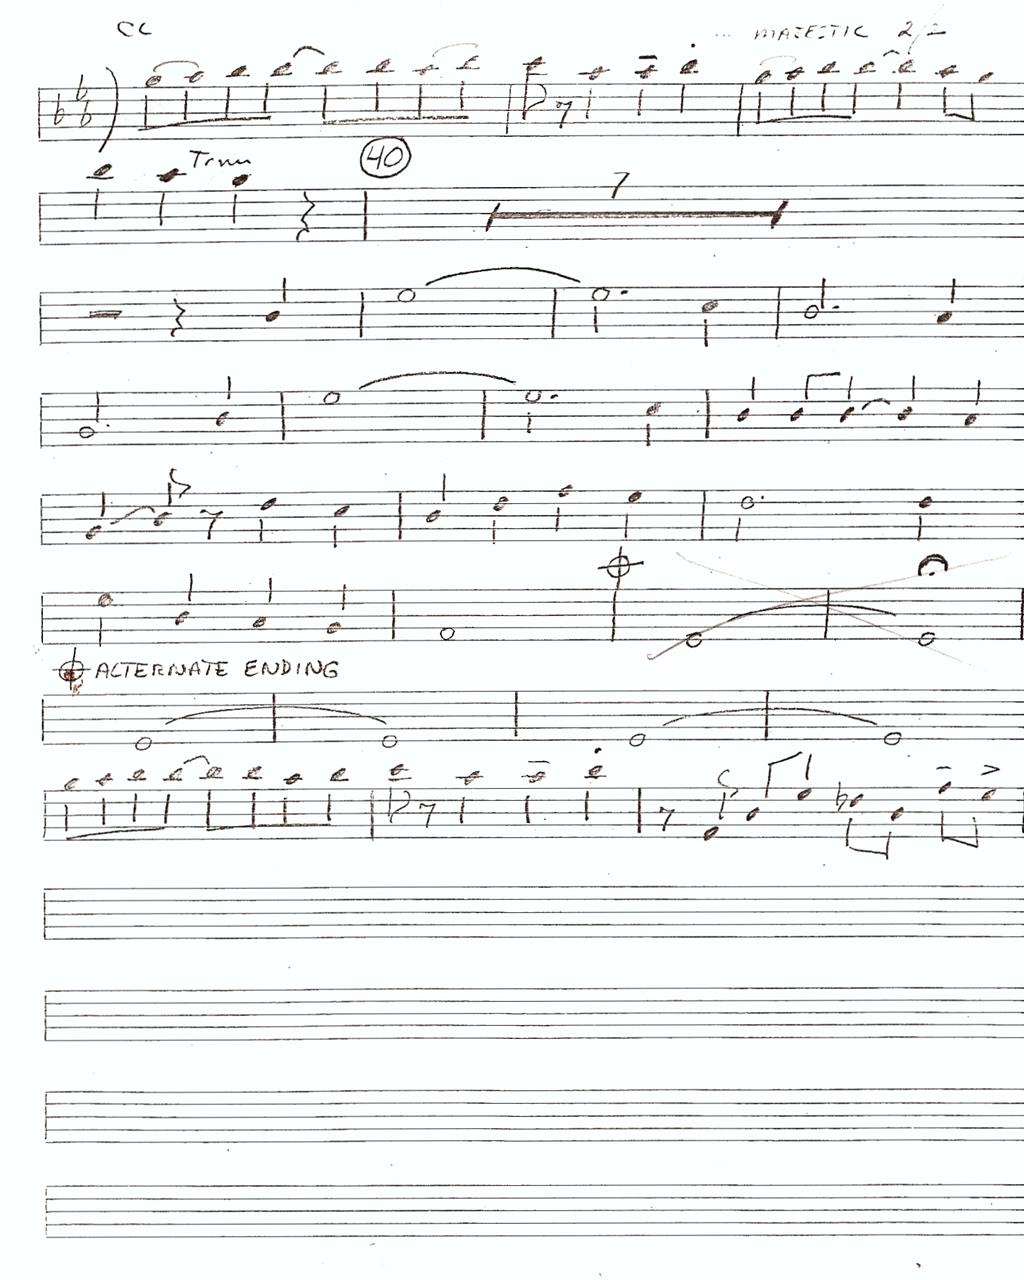 CL
... MAJESTIC 2/2
Tr
40
7
ALTERNATE ENDING